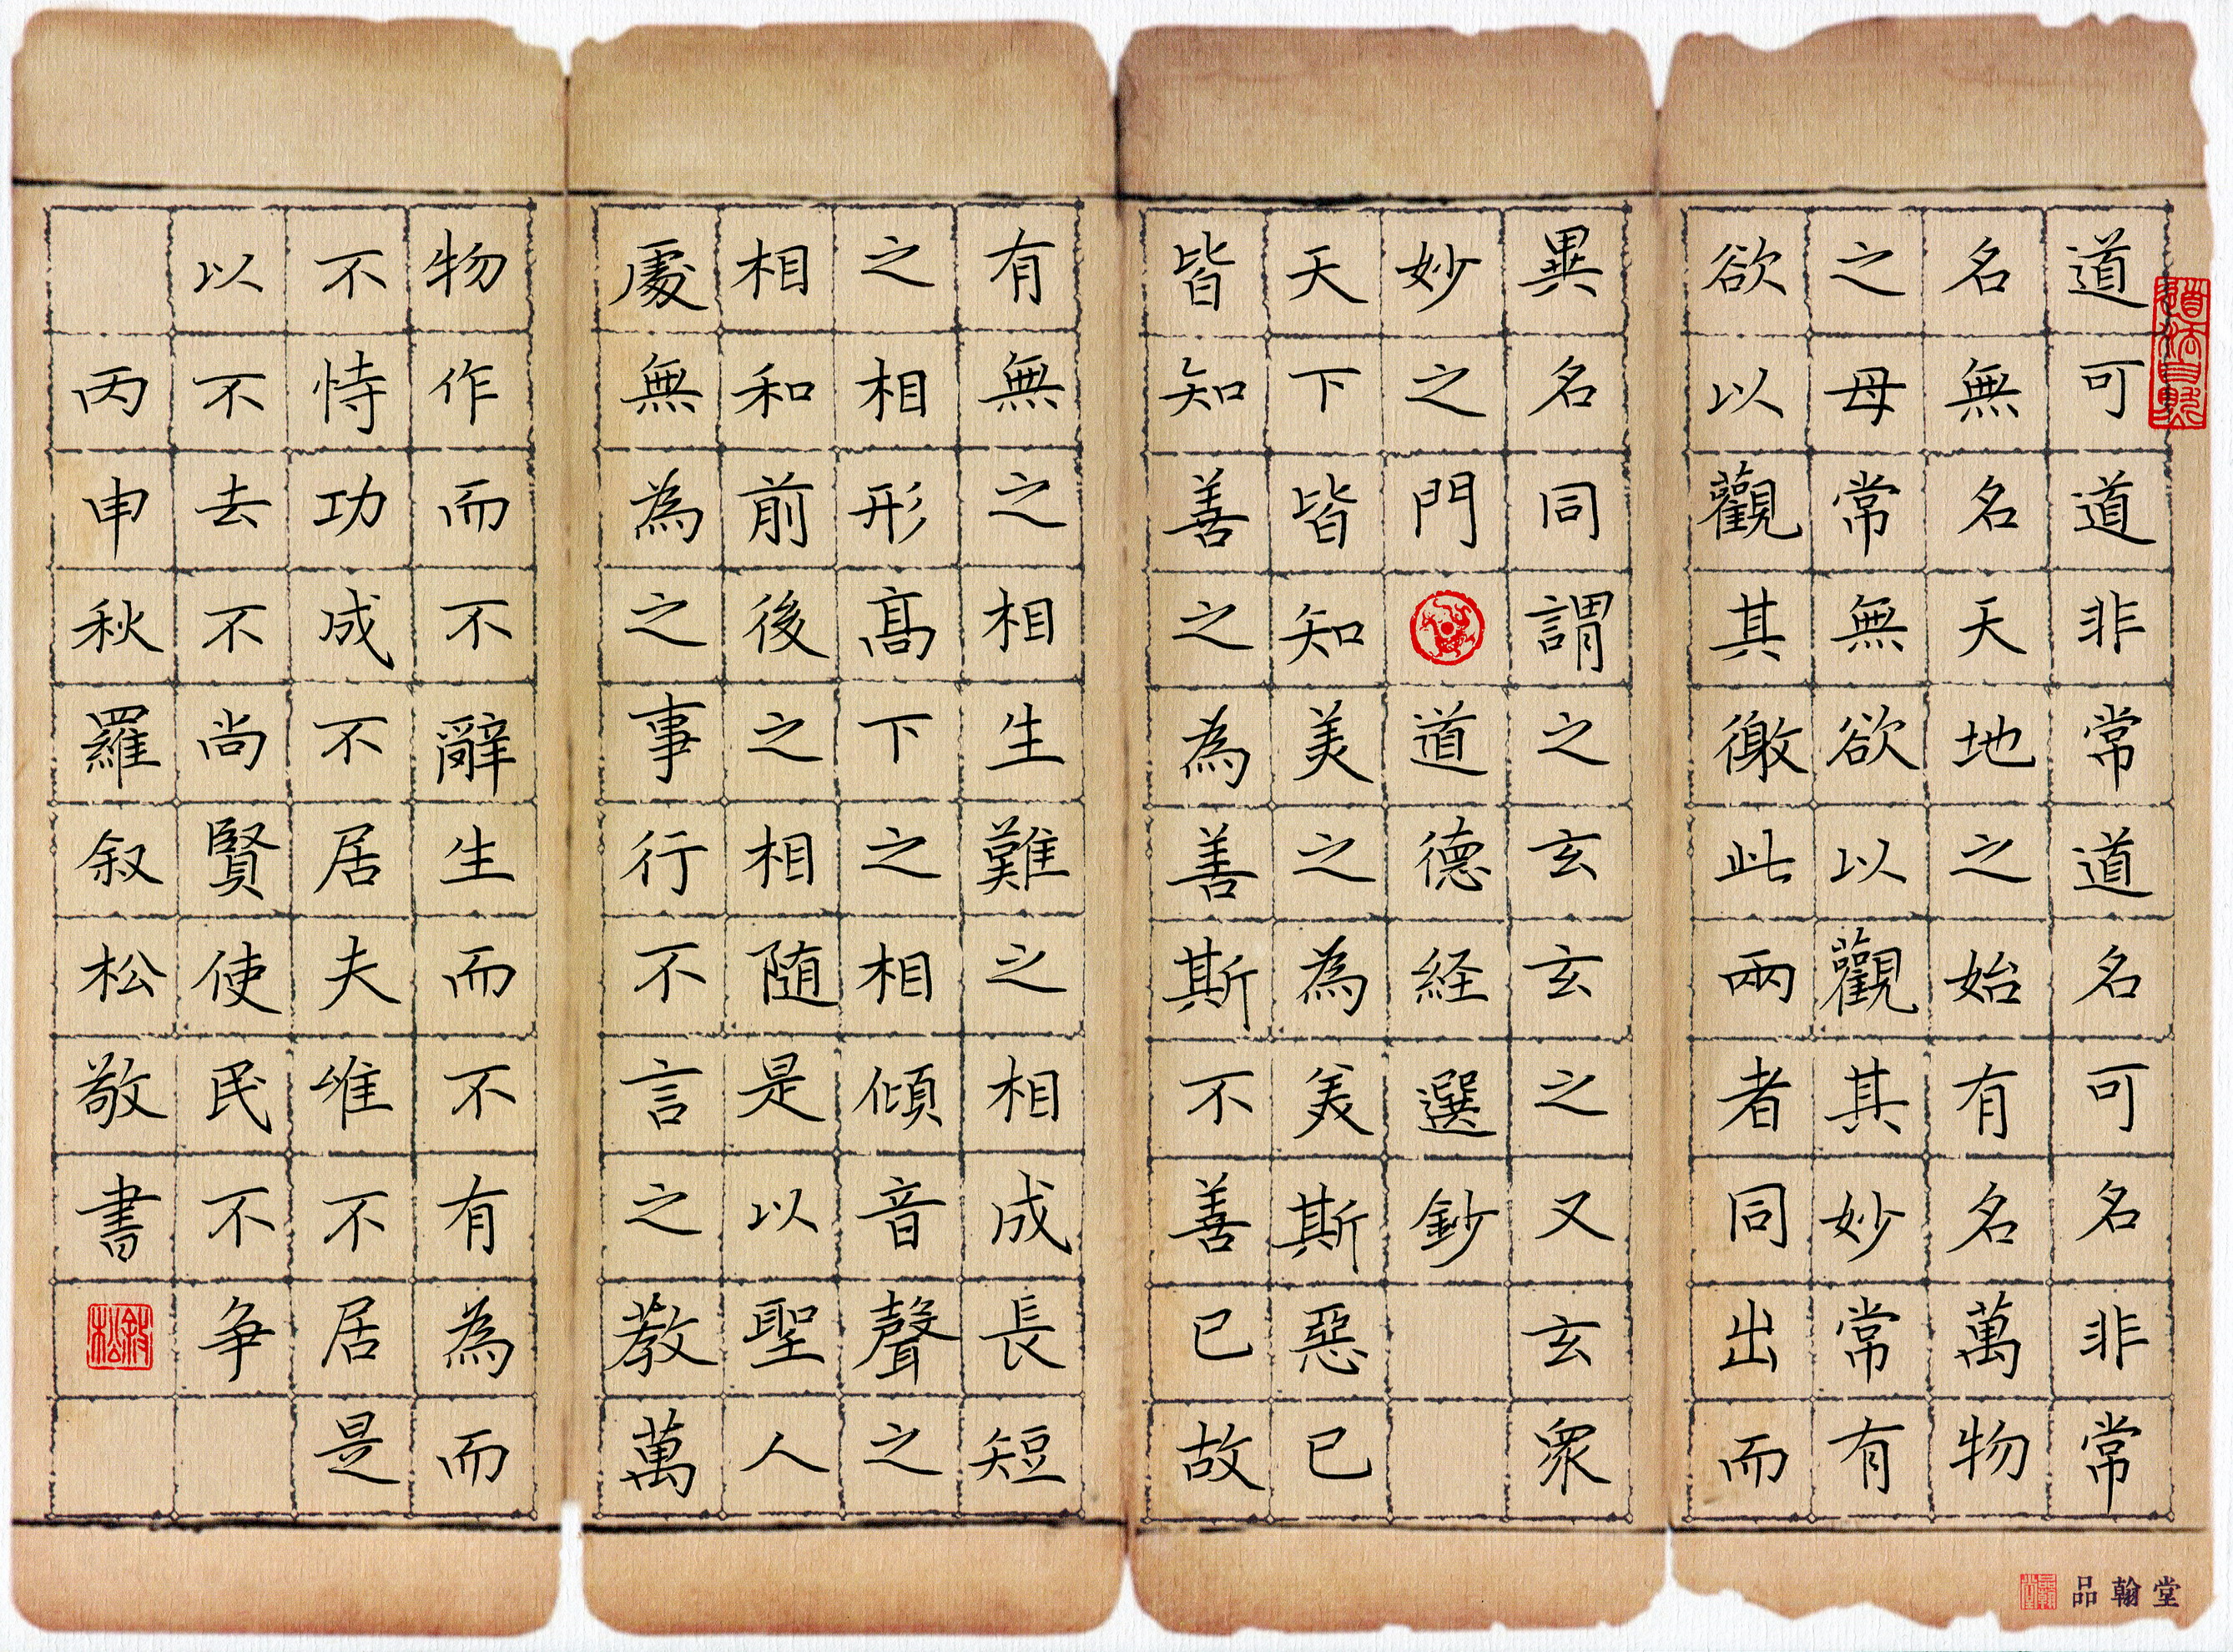 道可道非常道名可名非常
名無名天地之始有名萬物
之母常無欲以觀其妙常有
欲以觀其徼此兩者同出而
異名同謂之玄玄之又玄眾
妙之門
道德経選鈔
天下皆知美之為美斯惡已
皆知善之為善斯不善已故
有無之相生難之相成長短
之相形高下之相傾音聲之
相和前後之相随是以聖人
處無為之事行不言之教萬
物作而不辭生而不有為而
不恃功成不居夫唯不居是
以不去不尚賢使民不争
丙申秋羅叙松敬書
道法自然
叙松
品翰堂